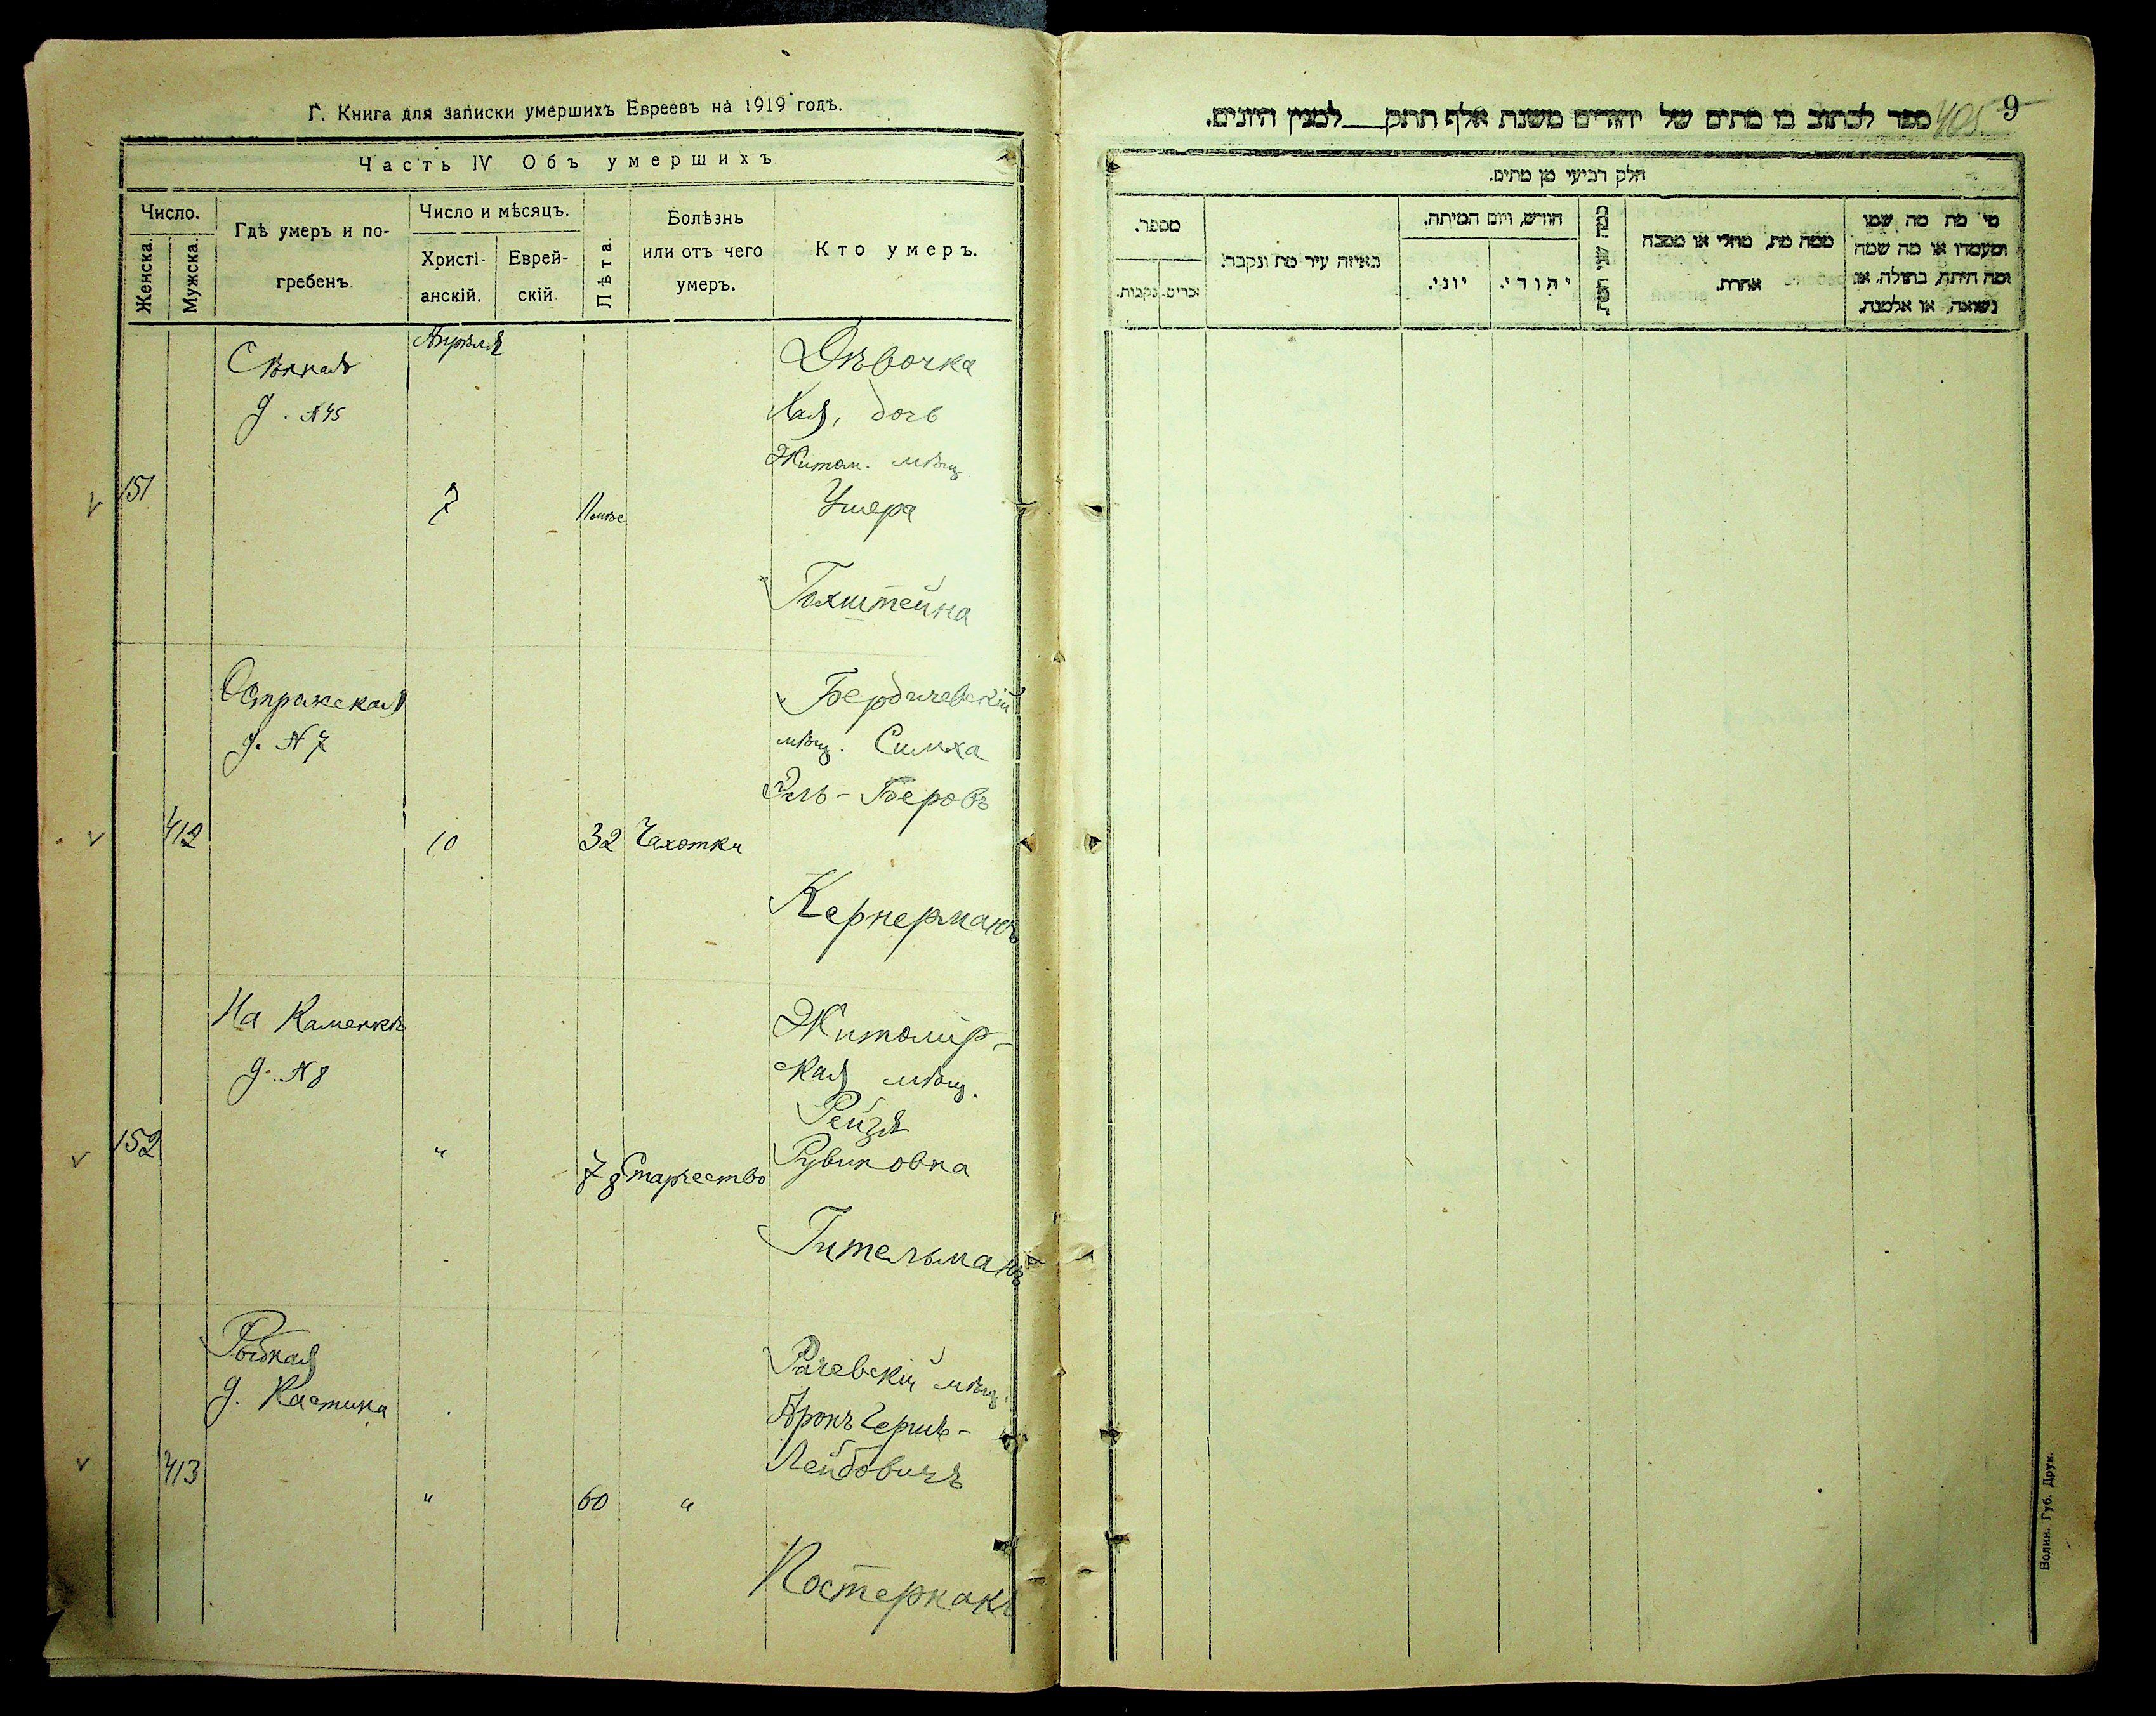 Г. Книга для записки умершихъ Евреевъ на 1919 годъ.
Часть IV Объ умершихъ
Число.
Женска.
Мужска.
Гдѣ умеръ и по-
гребенъ.
Число и мѣсяцъ.
Христі-
анскій.
Еврей-
скій.
Лѣта.
Болѣзнь
или отъ чего
умеръ.
Кто умеръ.
Апрѣля
Сѣнная
д. № 45
151
7
Дѣвочка
Хая, дочь
Житом. мѣщ.
Ушера
Гохштейна
Острожская
д. № 7
412
10
32
Чахотки
Бердичевскій
мѣщ. Симха
Эль-Беровъ
Кернерманъ
На Каменкѣ
д. № 8
152
"
78
Старчество
Житомір-
ская мѣщ.
Рейзя
Рувиновна
Гительманъ
Рыбная
д. Костина
413
"
60
"
Рачевскій мѣщ.
Аронъ Гершъ-
Лейбовичъ
Постернакъ
9
405
ספר לכתוב בו מתים של יהודים משנת אלף תתק___למנין היונים.
חלק רביעי מן מתים.
מספר.
זכרים.
נקבות.
באיזה עיר מת ונקבר.
חודש, ויום המיתה.
יוני.
יהודי.
ממה מת, מחלי או מסבה
אחרת.
מי מת מה שמו
ומעמדו או מה שמה
ומה היתה, בתולה, או
נשואה, או אלמנה.
Волин. Губ. Друк.